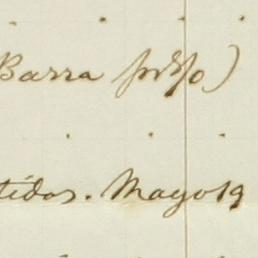 Barra        )
tidos. Mayo 19